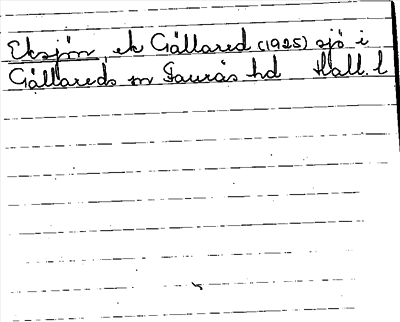 Eksjön, ek Gällared (1925) sjö i
Gällareds sn Faurås hd Hall. l